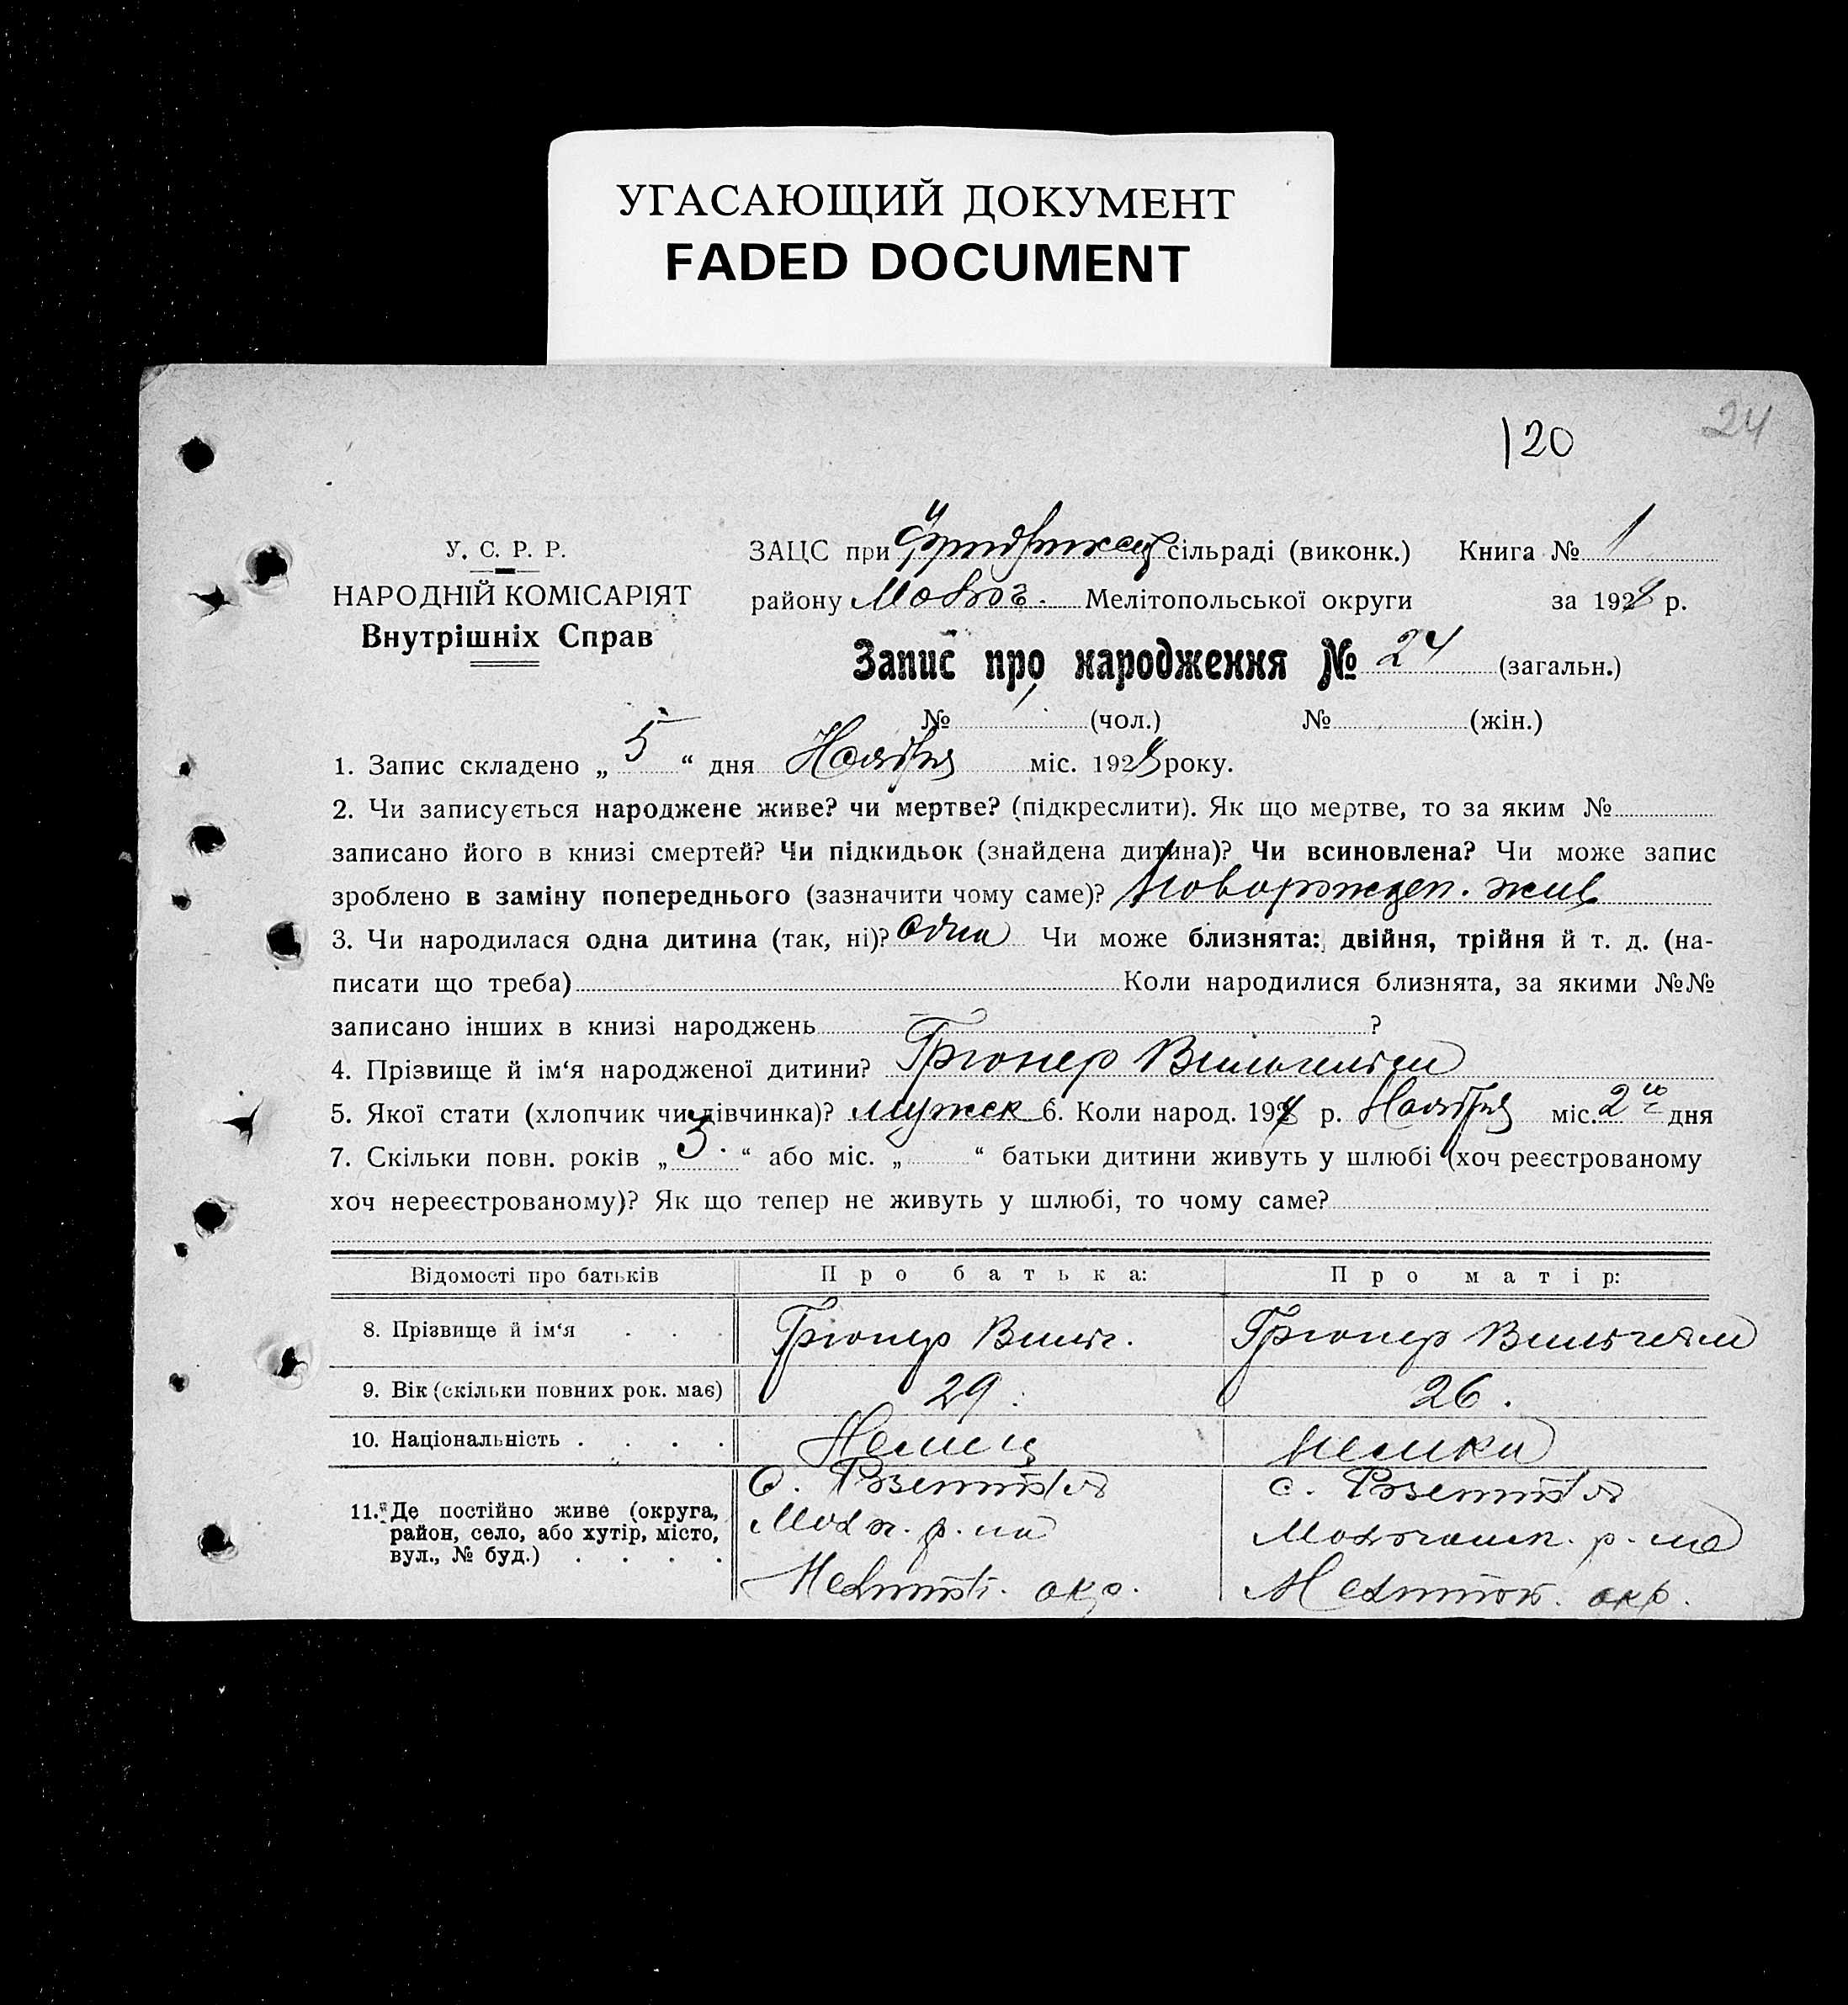 УГАСАЮЩИЙ ДОКУМЕНТ
FADED DOCUMENT
120
24
У. С. Р. Р.
НАРОДНІЙ КОМІСАРІЯТ
Внутрішніх Справ
ЗАЦС при сільраді (виконк.) Книга № 1
району Молоч. Мелітопольської округи за 1928 р.
Запис про народження № 24 (загальн.)
№ (чол.) № (жін.)
1. Запис складено „ 5 “ дня Ноября міс. 1928 року.
2. Чи записується народжене живе? чи мертве? (підкреслити). Як що мертве, то за яким №
записано його в книзі смертей? Чи підкидьок (знайдена дитина)? Чи всиновлена? Чи може запис
зроблено в заміну попереднього (зазначити чому саме)? Новорожден. жив
3. Чи народилася одна дитина (так, ні)? Одна Чи може близнята: двійня, трійня й т. д. (на-
писати що треба) Коли народилися близнята, за якими №№
записано інших в книзі народжень ?
4. Прізвище й ім‘я народженої дитини? Грюнер Вильгельм
5. Якої стати (хлопчик чи дівчинка)? мужск 6. Коли народ. 1928 р. Ноября міс. 2го дня
7. Скільки повн. років „ 3. “ або міс. „ “ батьки дитини живуть у шлюбі (хоч реєстрованому
хоч нереєстрованому)? Як що тепер не живуть у шлюбі, то чому саме?
Відомості про батьків Про батька: Про матір:
8. Прізвище й ім‘я . . . Грюнер Вильг. Грюнер
9. Вік (скільки повних рок. має) 29. 26.
10. Національність . . . . Немец немка
11. Де постійно живе (округа, с. с.
район, село, або хутір, місто, Молоч. р-на Молочанск. р-на
вул., № буд.) . . . . Мелитоп. окр. Мелитоп. окр.